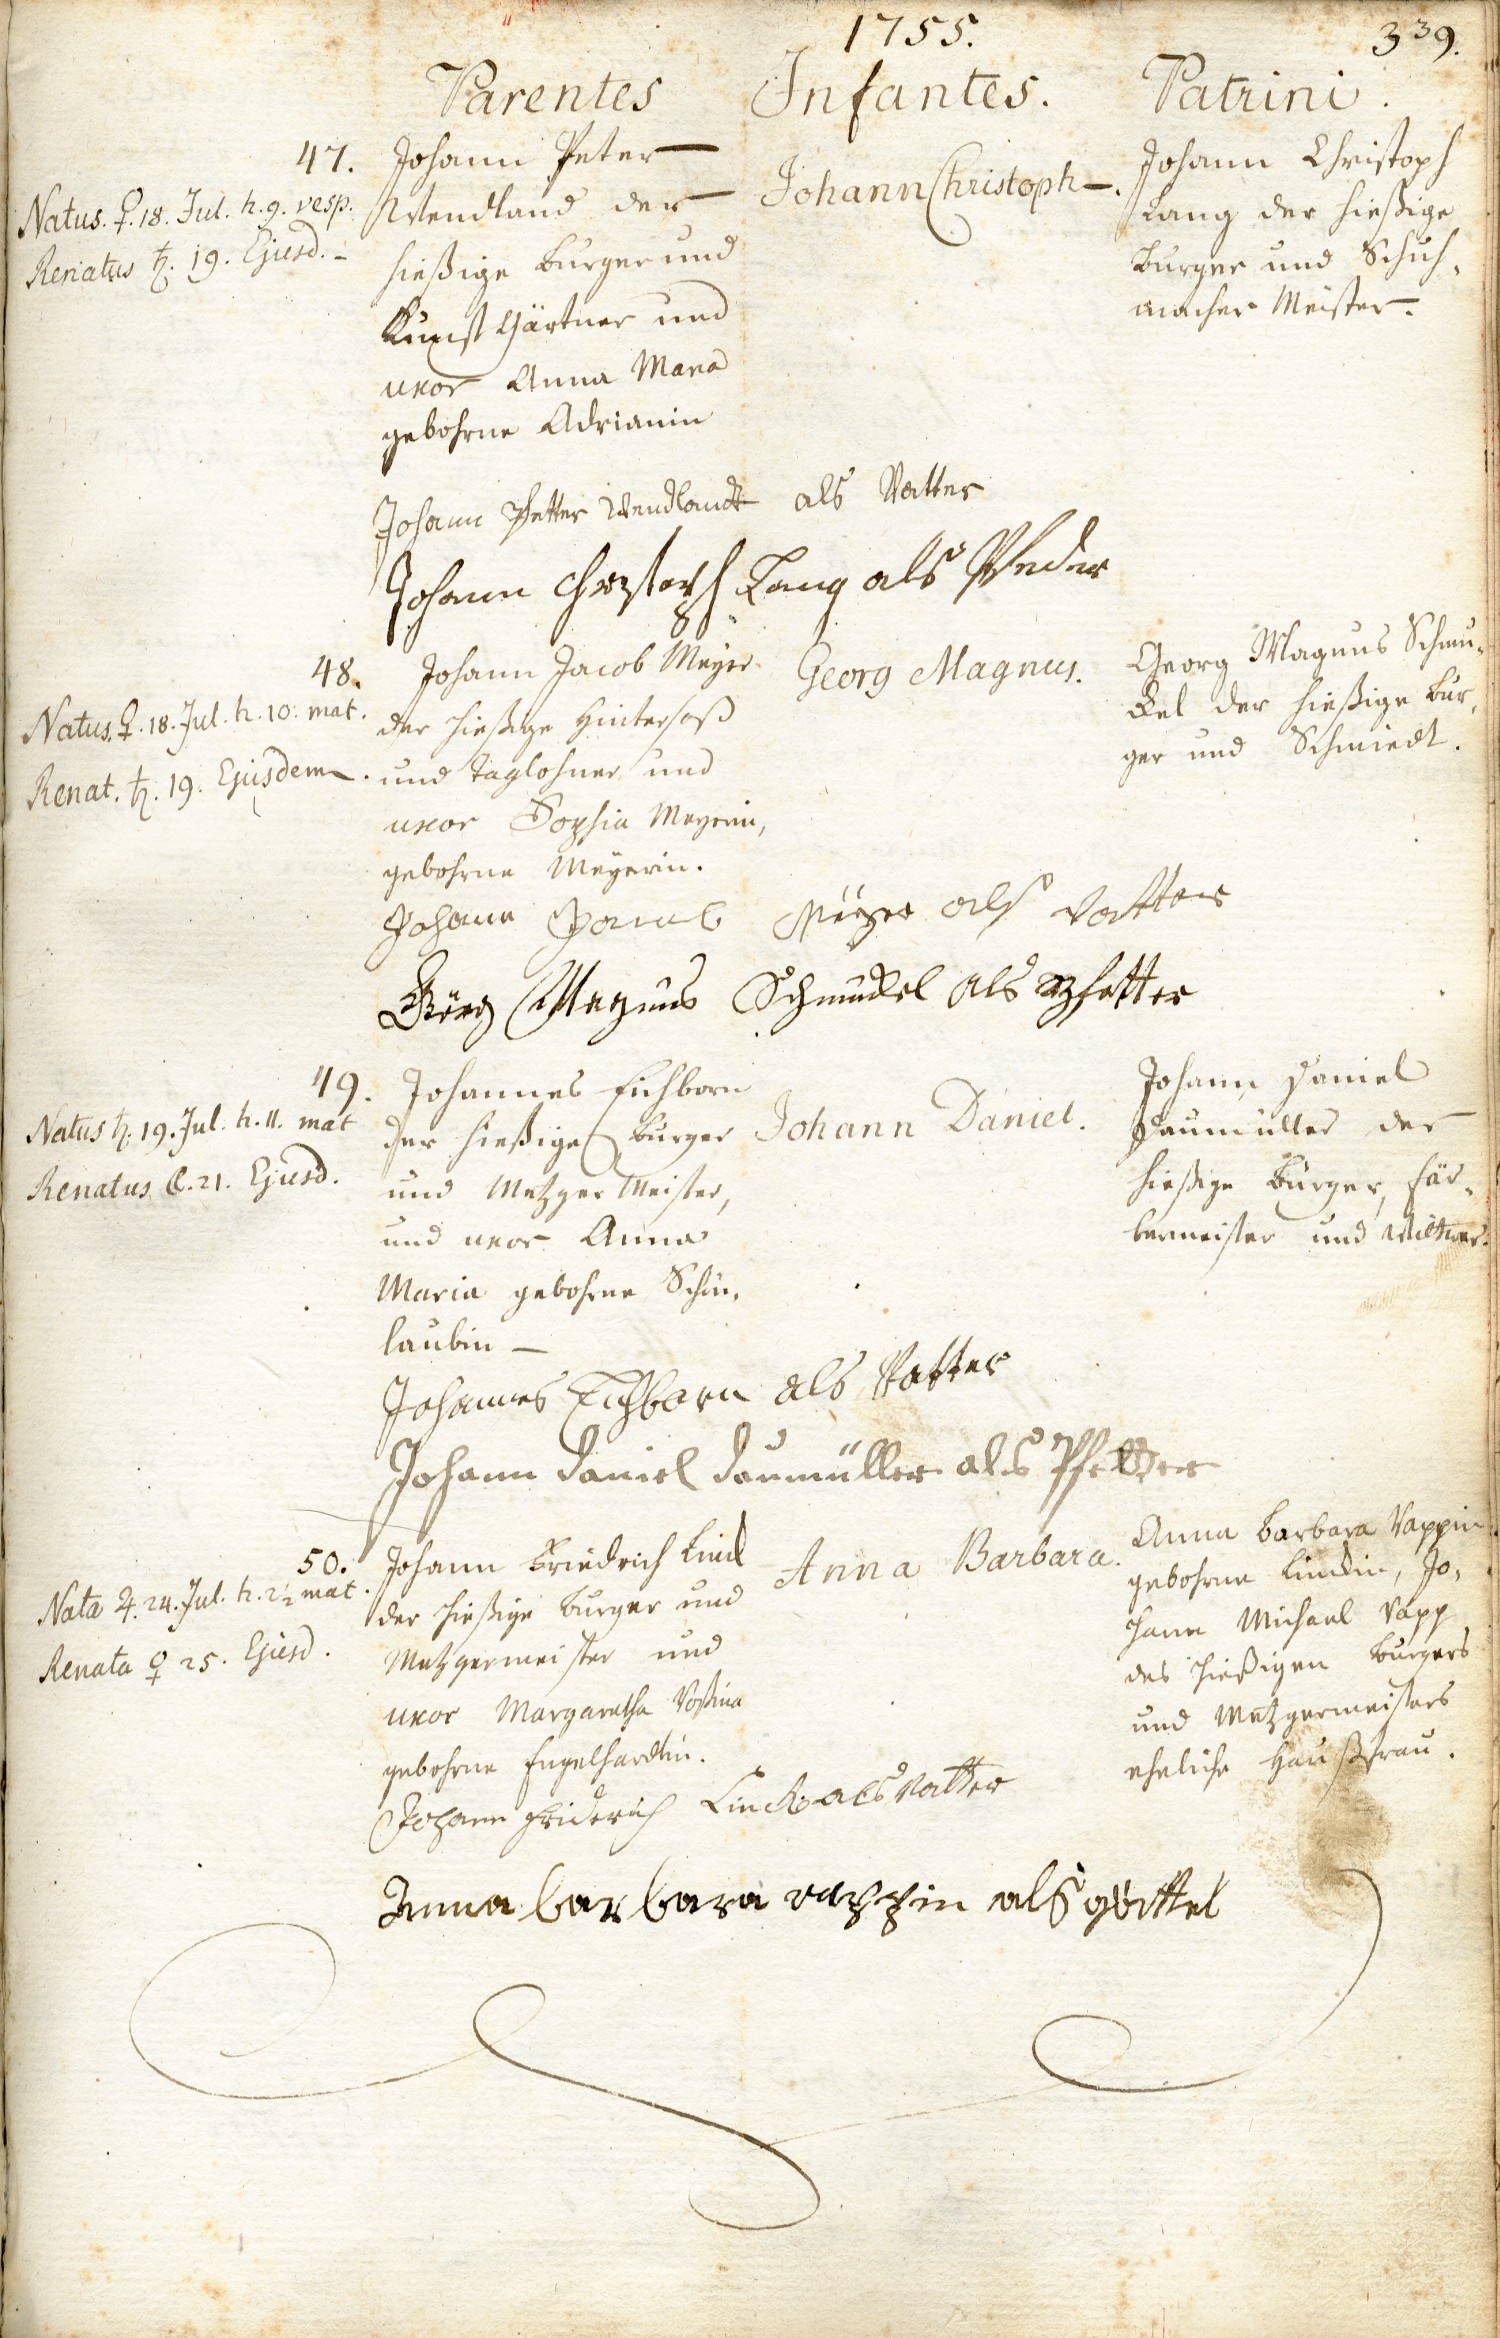 1755.
339.
Parentes Infantes. Patrini.
47.
Natus. ♀. 18. Jul. h. 9. vesp.
Renatus ♄. 19. Ejusd. –
Johann Peter
Wendland der
hießige Burger und
Kunst Gärtner und
uxor Anna Maria
gebohrne Adrianin
Johann Christoph.
Johann Christoph
Lang der hießige
Burger und Schuh-
macher Meister.
Johann Petter Wendlandt als Vatter
Johann Lang als Pfeder
48.
Natus. ♀. 18. Jul. h. 10. mat.
Renat. ♄. 19. Ejusdem.
Johann Jacob Meyer
der hießige Hintersaß
und Taglohner und
uxor Sophia Meyerin,
gebohrne Meyerin.
Georg Magnus.
Georg Magnus Schmu-
ckel der hießige Bur-
ger und Schmiedt.
Johann Jacob als Vatter
Görg Magnus Schmuckel als Pfetter
49.
Natus ♄. 19. Jul. h. 11. mat
Renatus ☾. 21. Ejusd.
Johannes Eichborn
der hießige Burger
und Metzger Meister,
und uxor Anna
Maria gebohrne Schön-
laubin –
Johann Daniel.
Johann Daniel
Daumüller der
hießige Burger, Fär-
bermeister und Wittwer.
Johannes Eichborn als Vatter
Johann Daniel Daumüller als Pfetter
50.
Nata ♃. 24. Jul. h. 2½ mat.
Renata ♀ 25. Ejusd.
Johann Friedrich Linck
der hießige Burger und
Metzgermeister und
uxor Margaretha
gebohrne Engelhardtin.
Anna Barbara.
Anna Barbara Rappin
gebohrne Linckin, Jo-
hann Michael Rapp
des hießigen Burgers
und Metzgermeisters
eheliche Haußfrau.
Johann Friderich Linck als Vatter
Anna barbara rappin als göttel